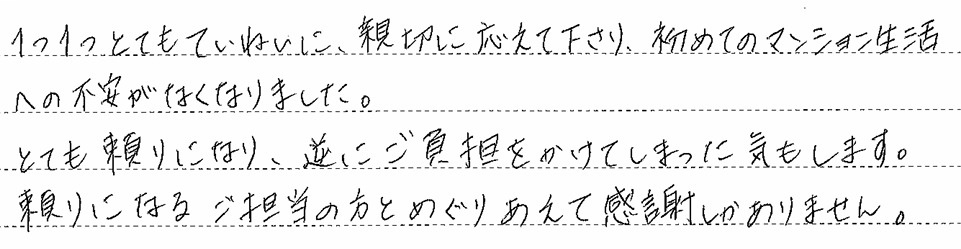 1つ1つとてもていねいに、親切に応えて下さり、初めてのマンション生活
への不安がなくなりました。
とても頼りになり、逆にご負担をかけてしまった気もします。
頼りになるご担当の方とめぐりあえて感謝しかありません。